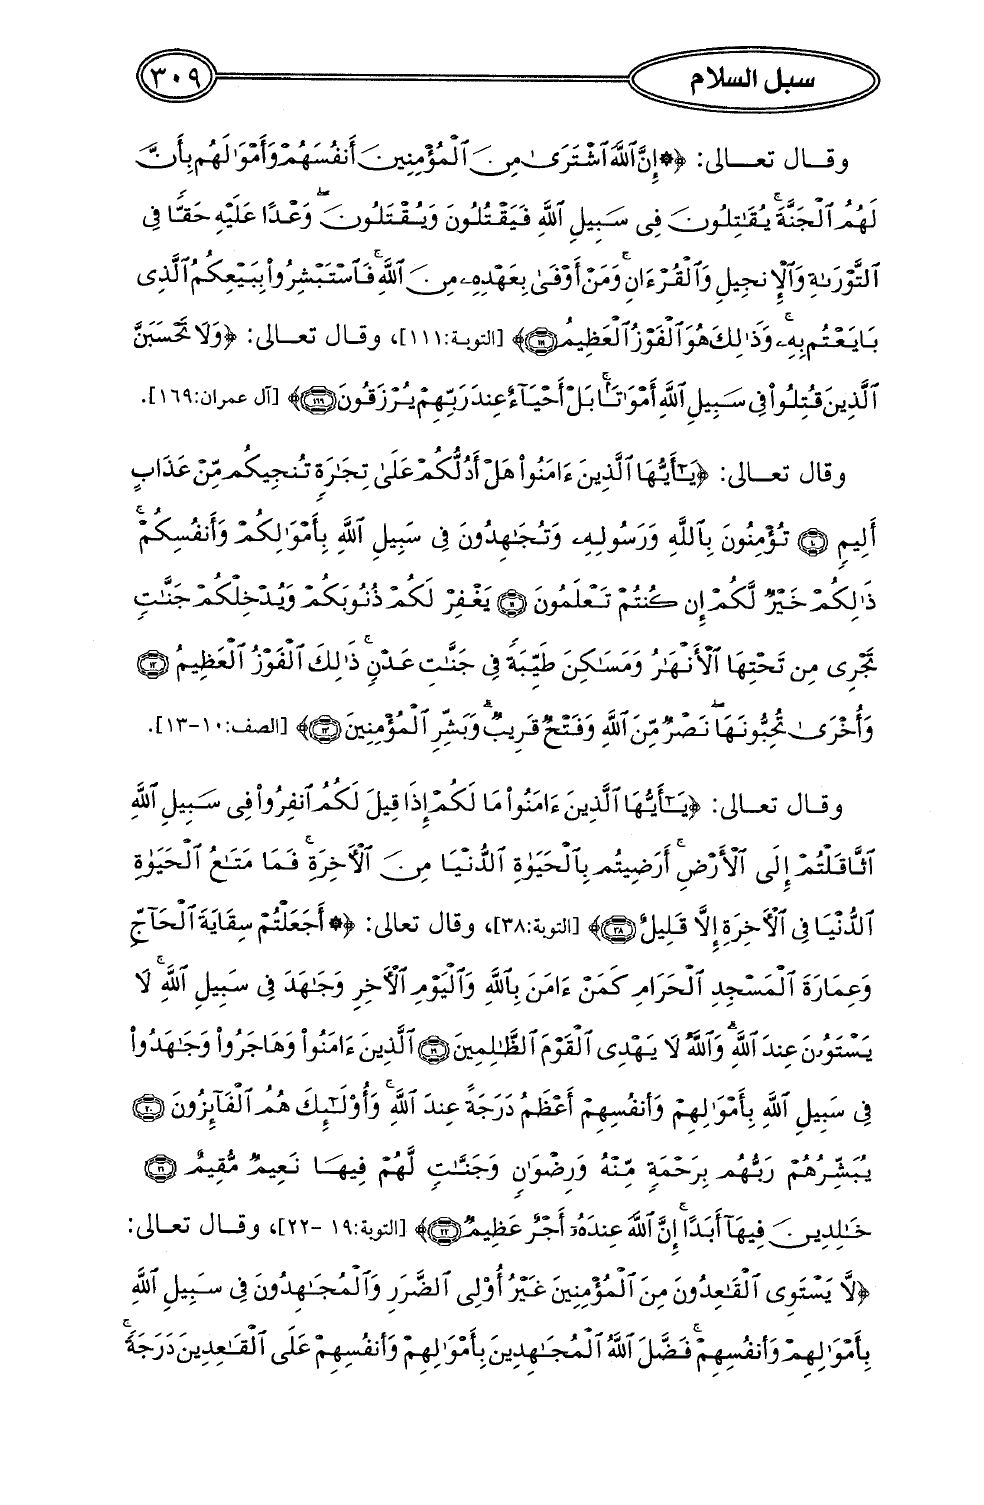 سبل السلام
٣٠٩
وقال تعالى: ﴿۞ إِنَّ ٱللَّهَ ٱشْتَرَىٰ مِنَ ٱلْمُؤْمِنِينَ أَنفُسَهُمْ وَأَمْوَٰلَهُم بِأَنَّ
لَهُمُ ٱلْجَنَّةَ ۚ يُقَٰتِلُونَ فِى سَبِيلِ ٱللَّهِ فَيَقْتُلُونَ وَيُقْتَلُونَ ۖ وَعْدًا عَلَيْهِ حَقًّا فِى
ٱلتَّوْرَىٰةِ وَٱلْإِنجِيلِ وَٱلْقُرْءَانِ ۚ وَمَنْ أَوْفَىٰ بِعَهْدِهِۦ مِنَ ٱللَّهِ ۚ فَٱسْتَبْشِرُوا۟ بِبَيْعِكُمُ ٱلَّذِى
بَايَعْتُم بِهِۦ ۚ وَذَٰلِكَ هُوَ ٱلْفَوْزُ ٱلْعَظِيمُ ١١١﴾ [التوبة:١١١]، وقال تعالى: ﴿وَلَا تَحْسَبَنَّ
ٱلَّذِينَ قُتِلُوا۟ فِى سَبِيلِ ٱللَّهِ أَمْوَٰتًۢا ۚ بَلْ أَحْيَآءٌ عِندَ رَبِّهِمْ يُرْزَقُونَ ١٦٩﴾ [آل عمران:١٦٩].
وقال تعالى: ﴿يَٰٓأَيُّهَا ٱلَّذِينَ ءَامَنُوا۟ هَلْ أَدُلُّكُمْ عَلَىٰ تِجَٰرَةٍ تُنجِيكُم مِّنْ عَذَابٍ
أَلِيمٍ ١٠ تُؤْمِنُونَ بِٱللَّهِ وَرَسُولِهِۦ وَتُجَٰهِدُونَ فِى سَبِيلِ ٱللَّهِ بِأَمْوَٰلِكُمْ وَأَنفُسِكُمْ ۚ
ذَٰلِكُمْ خَيْرٌ لَّكُمْ إِن كُنتُمْ تَعْلَمُونَ ١١ يَغْفِرْ لَكُمْ ذُنُوبَكُمْ وَيُدْخِلْكُمْ جَنَّٰتٍ
تَجْرِى مِن تَحْتِهَا ٱلْأَنْهَٰرُ وَمَسَٰكِنَ طَيِّبَةً فِى جَنَّٰتِ عَدْنٍ ۚ ذَٰلِكَ ٱلْفَوْزُ ٱلْعَظِيمُ ١٢
وَأُخْرَىٰ تُحِبُّونَهَا ۖ نَصْرٌ مِّنَ ٱللَّهِ وَفَتْحٌ قَرِيبٌ ۗ وَبَشِّرِ ٱلْمُؤْمِنِينَ ١٣﴾ [الصف:١٠-١٣].
وقال تعالى: ﴿يَٰٓأَيُّهَا ٱلَّذِينَ ءَامَنُوا۟ مَا لَكُمْ إِذَا قِيلَ لَكُمُ ٱنفِرُوا۟ فِى سَبِيلِ ٱللَّهِ
ٱثَّاقَلْتُمْ إِلَى ٱلْأَرْضِ ۚ أَرَضِيتُم بِٱلْحَيَوٰةِ ٱلدُّنْيَا مِنَ ٱلْأَخِرَةِ ۚ فَمَا مَتَٰعُ ٱلْحَيَوٰةِ
ٱلدُّنْيَا فِى ٱلْأَخِرَةِ إِلَّا قَلِيلٌ ٣٨﴾ [التوبة:٣٨]، وقال تعالى: ﴿۞ أَجَعَلْتُمْ سِقَايَةَ ٱلْحَآجِّ
وَعِمَارَةَ ٱلْمَسْجِدِ ٱلْحَرَامِ كَمَنْ ءَامَنَ بِٱللَّهِ وَٱلْيَوْمِ ٱلْأَخِرِ وَجَٰهَدَ فِى سَبِيلِ ٱللَّهِ ۚ لَا
يَسْتَوُۥنَ عِندَ ٱللَّهِ ۗ وَٱللَّهُ لَا يَهْدِى ٱلْقَوْمَ ٱلظَّٰلِمِينَ ١٩ ٱلَّذِينَ ءَامَنُوا۟ وَهَاجَرُوا۟ وَجَٰهَدُوا۟
فِى سَبِيلِ ٱللَّهِ بِأَمْوَٰلِهِمْ وَأَنفُسِهِمْ أَعْظَمُ دَرَجَةً عِندَ ٱللَّهِ ۚ وَأُو۟لَٰٓئِكَ هُمُ ٱلْفَآئِزُونَ ٢٠
يُبَشِّرُهُمْ رَبُّهُم بِرَحْمَةٍ مِّنْهُ وَرِضْوَٰنٍ وَجَنَّٰتٍ لَّهُمْ فِيهَا نَعِيمٌ مُّقِيمٌ ٢١
خَٰلِدِينَ فِيهَآ أَبَدًا ۚ إِنَّ ٱللَّهَ عِندَهُۥٓ أَجْرٌ عَظِيمٌ ٢٢﴾ [التوبة:١٩-٢٢]، وقال تعالى:
﴿لَّا يَسْتَوِى ٱلْقَٰعِدُونَ مِنَ ٱلْمُؤْمِنِينَ غَيْرُ أُو۟لِى ٱلضَّرَرِ وَٱلْمُجَٰهِدُونَ فِى سَبِيلِ ٱللَّهِ
بِأَمْوَٰلِهِمْ وَأَنفُسِهِمْ ۚ فَضَّلَ ٱللَّهُ ٱلْمُجَٰهِدِينَ بِأَمْوَٰلِهِمْ وَأَنفُسِهِمْ عَلَى ٱلْقَٰعِدِينَ دَرَجَةً ۚ